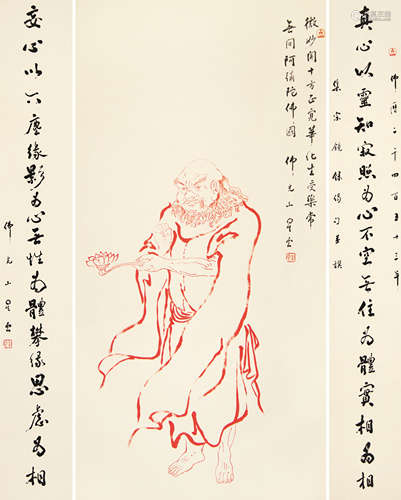 佛曆二千四百五十三年
真心以靈知寂照為心不空無住為體實相為相
集宗鏡錄偈句
微妙聞十方正覺華化生受樂常
無間阿彌陀佛國 佛光山星雲
妄心以六塵緣影為心無性為體攀緣思慮為相
佛光山星雲